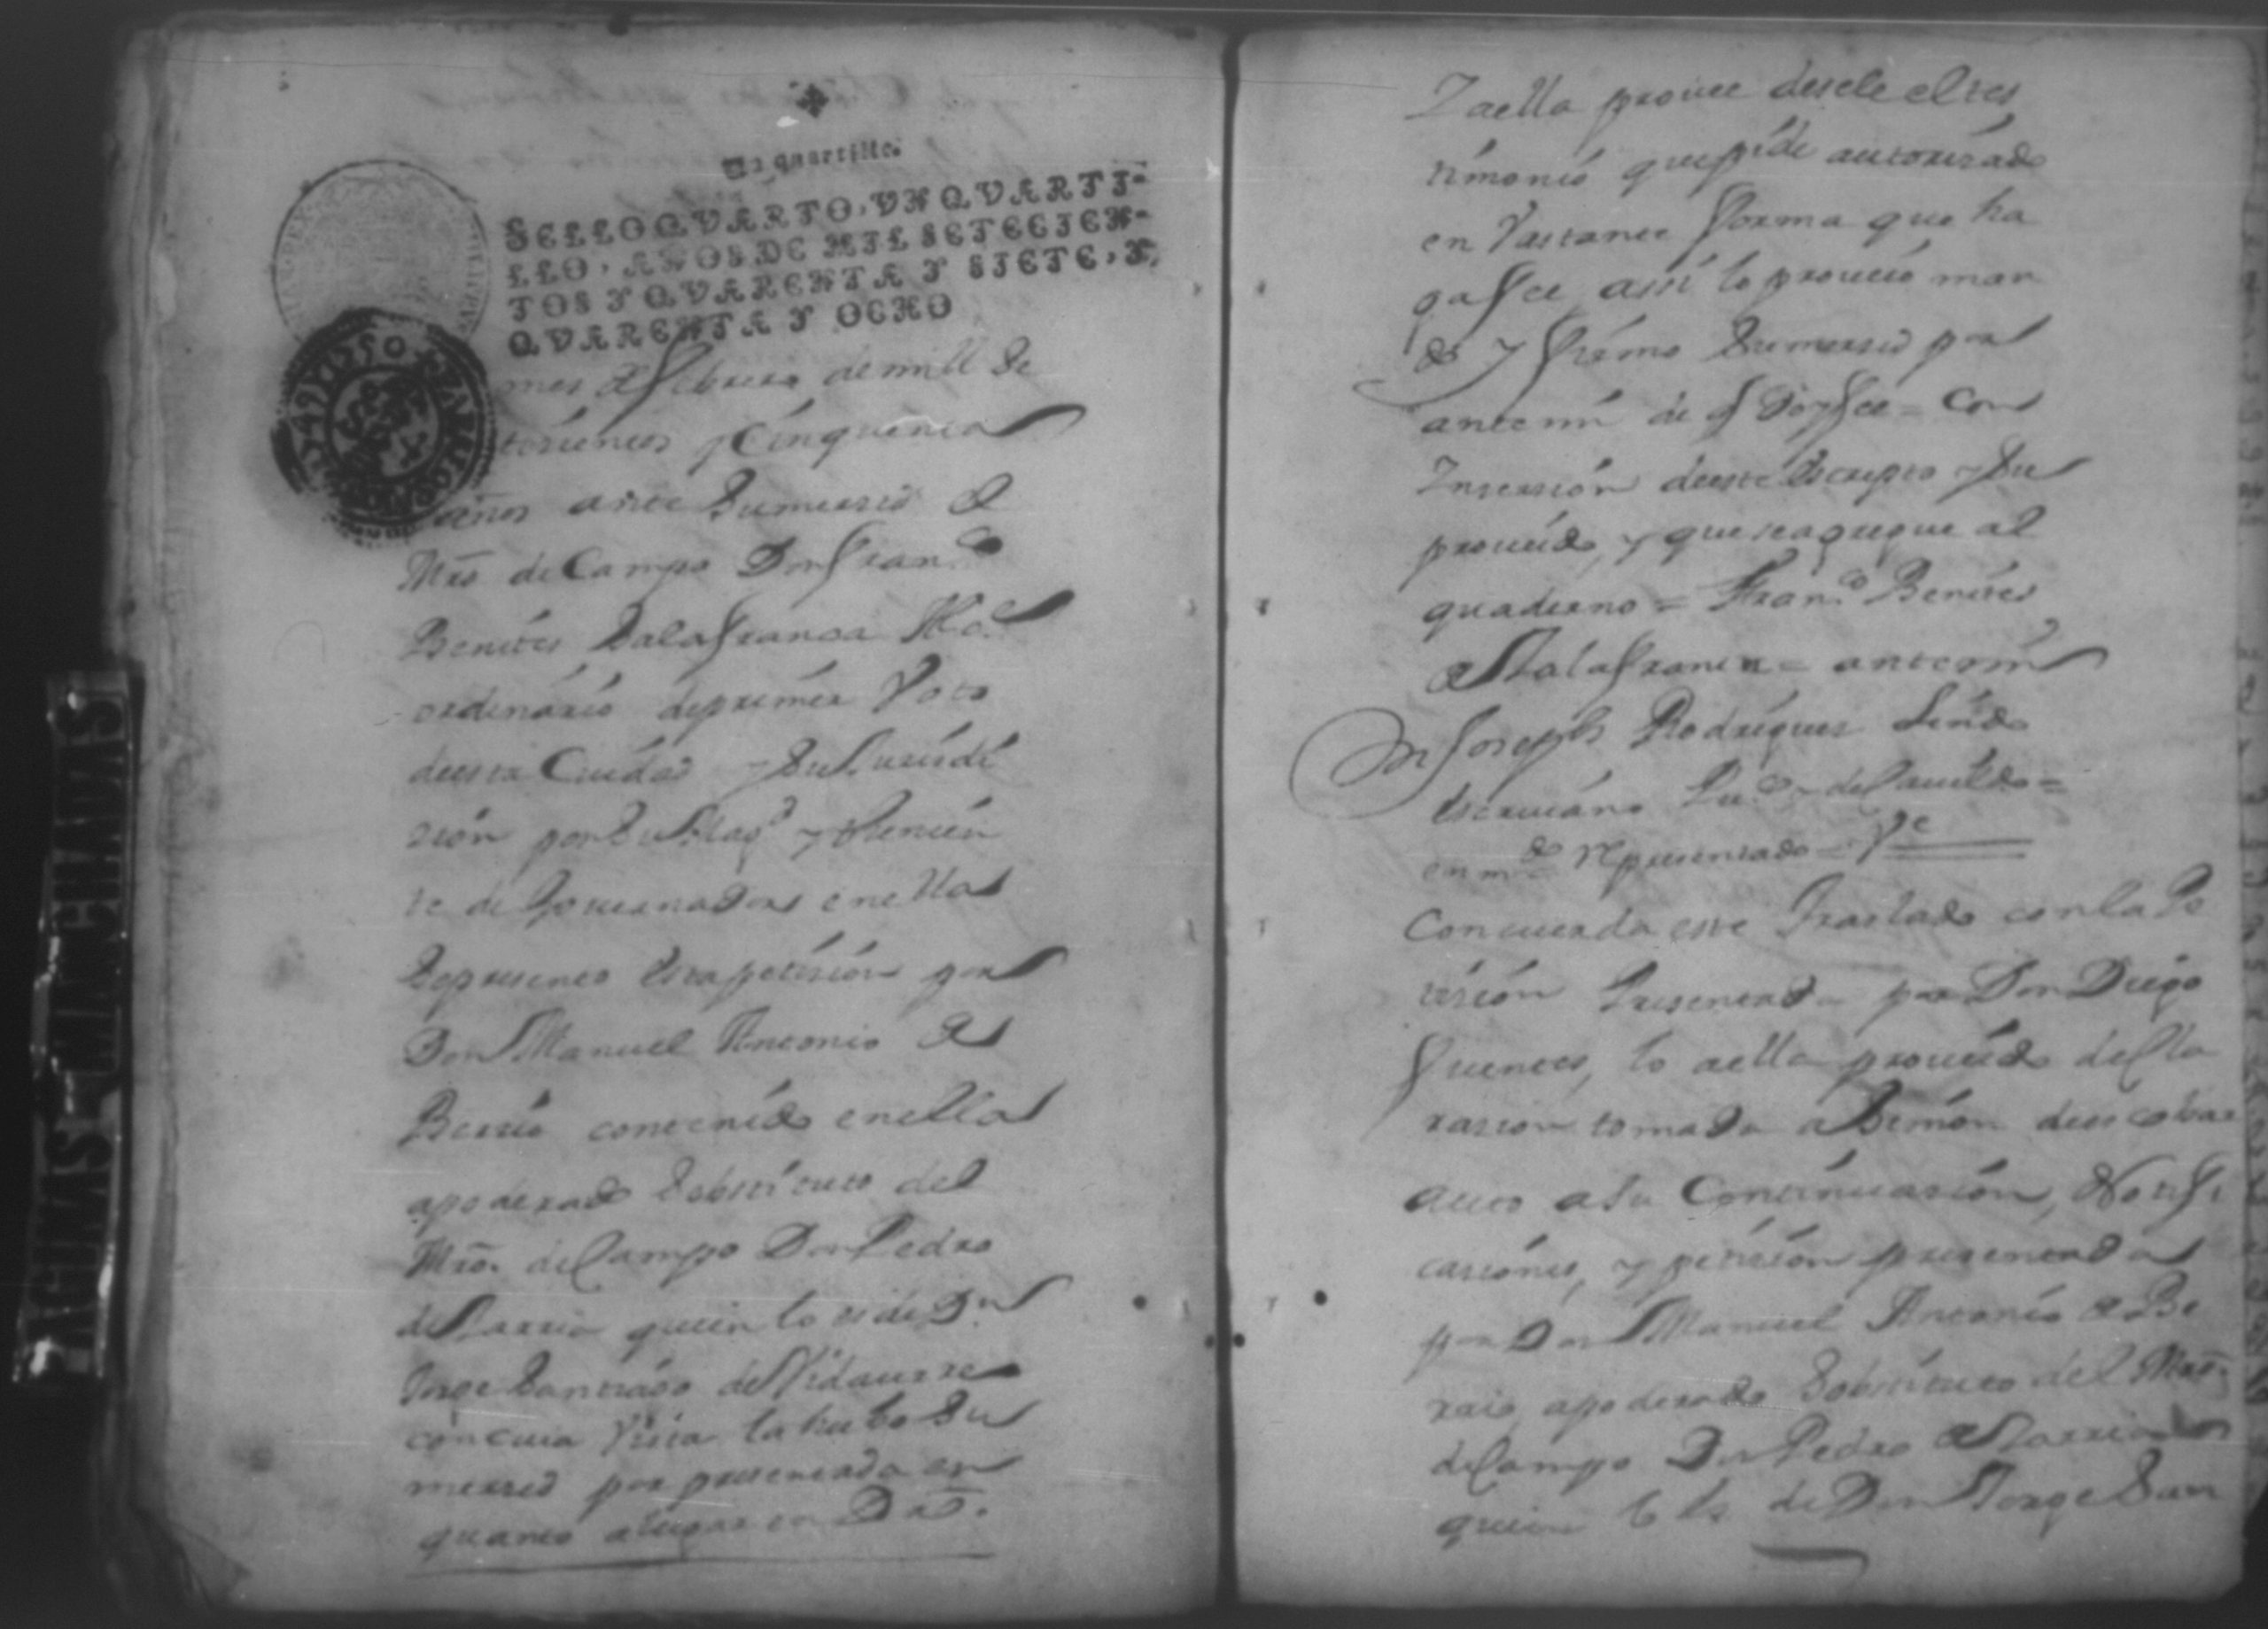 Un quartillo.
SELLO QVARTO, VN QVARTI-
LLO, AÑOS DE MIL SETECIEN-
TOS Y QVARENTA Y SIETE, Y
QVARENTA Y OCHO
mes de febrero de mill se
tesientos y Cinquenta
años ante Sumersed el
Mro de Campo Don Franco
Benites Salafranca Alce
ordinario de primer Voto
de esta Ciudad y su Jurisdi
sion por Su Magd y Thenien
te de Governador en ella
Se presento esta petision por
Don Manuel Antonio de
Berrio contenido en ella
apoderado Sobstituto del
Mro. de Campo Don Pedro
de Barrio quien lo es de Dn
Jorge Santiago de Vidaurre
con cuia Vista la hubo Su
mersed por presentada en
quanto a lugar en Dro.
Y a ella provee desele el tes
timonio que pide autorisado
en Vastante forma que ha
ga fee assi lo proveio man
do y firmo Sumersed por
ante mi de q Doy fee = Con
Insersion de este escripto y Su
proveido, y que se agregue al
quaderno = Franco Benites
Salafranca = ante mi
Dn Joseph Rodrigues
escrivano Puco y de Cavildo =
en mdo representado = Ve
Concuerda este Traslado con la Pe
tision Presentada por Don Diego
fuentes, lo a ella proveido decla
rasion tomada a Simon de escobar
auto a su Continuasion, Notifi
casiones, y petision presentada
por Don Manuel Antonio de Be
rrio apoderado Sobstituto del Mro.
de Campo Don Pedro de Barrio
quien lo es de Don Jorge San